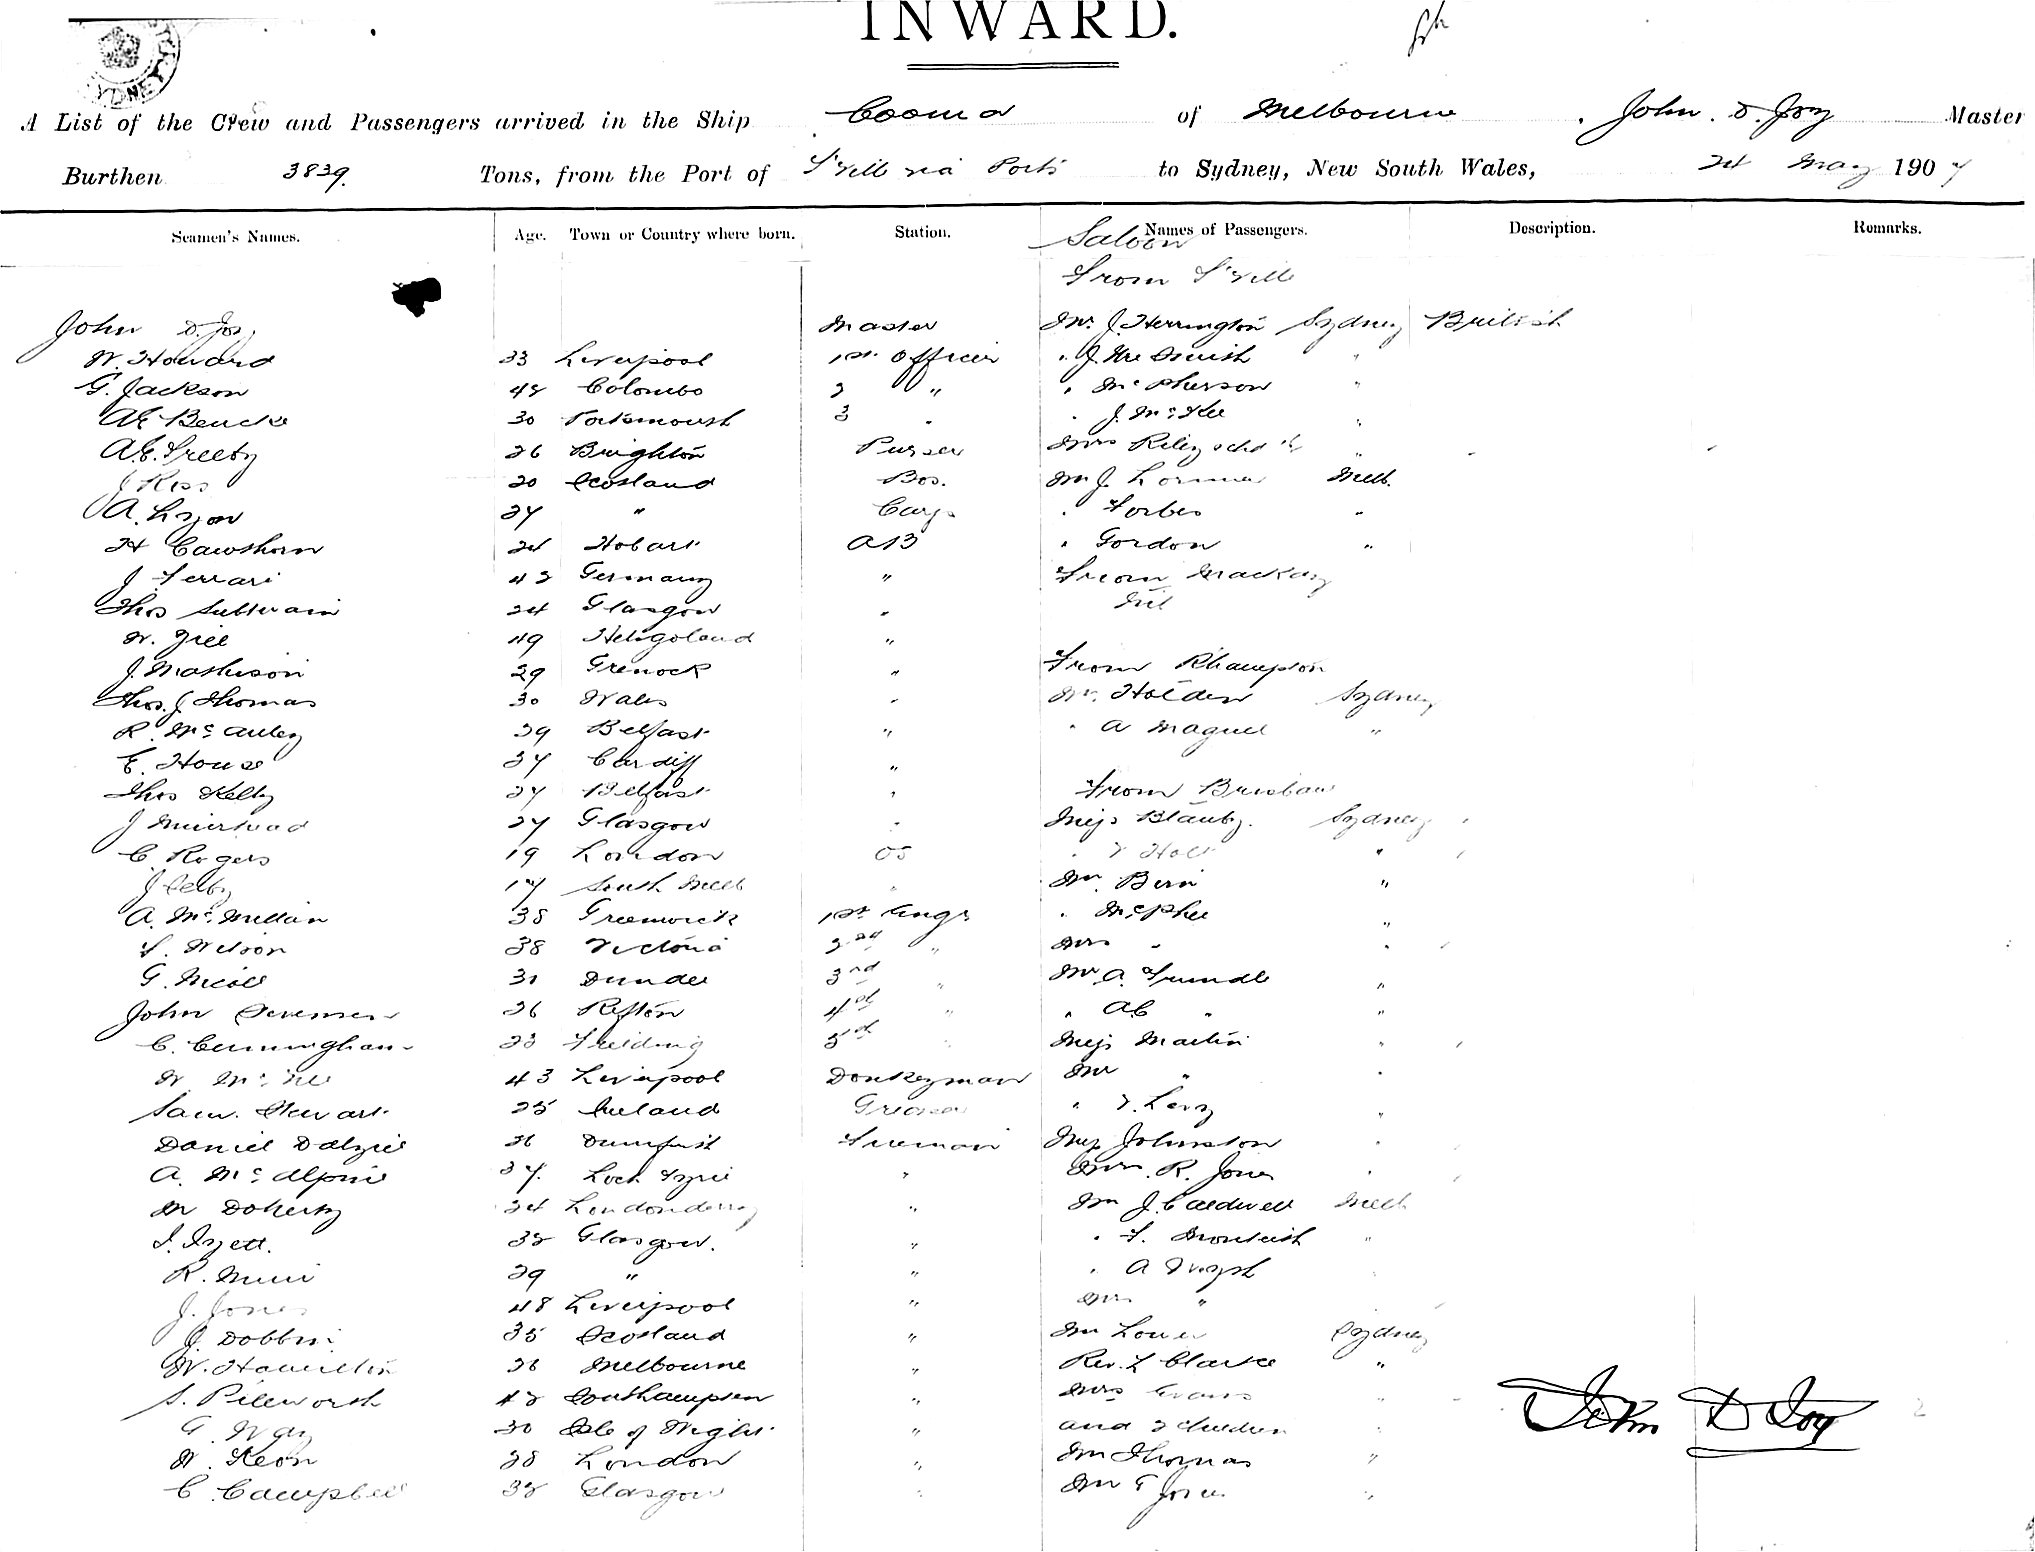 INWARD.
A List of the Crew and Passengers arrived in the Ship Cooma of Melbourne, John. D. Joy Master
Burthen 3839. Tons, from the Port of T'ville via Ports to Sydney, New South Wales, 24 May 1907
Seamen's Names. Age. Town or Country where born. Station. Names of Passengers. Description. Remarks.
Saloon
From T'ville
John D. Joy Master Mr. J. Herrington Sydney British
W. Howard 33 Liverpool 1st. Officer " "
G. Jackson 48 Colombo 2 " " McPherson "
30 Portsmouth 3 " " J. McKee "
26 Brighton Purser Mrs Riley "
J Ross 30 Scotland Bos. Mr J. Melb.
A. Lyon 27 " Carp " Forbes "
H Cawthorn 24 Hobart AB " Gordon "
J Ferrari 42 Germany " From Mackay
Thos 24 Glasgow " Nil
W. Gill 49 Heligoland "
J. Mathieson 29 Grenock " From R'hampton
Thos. J Thomas 30 Wales " Mr. Holden Sydney
R. McAuley 29 Belfast " " A "
E. House 27 Cardiff "
Thos Kelly 27 Belfast " From Brisbane
J Muirhead 27 Glasgow " Miss Sydney
C. Rogers 19 London OS " Holt "
J 17 South Melb " Mr. "
A. McMillan 38 Greenwich 1st Eng " McPhee "
Wilson 38 Victoria 2nd " Mrs " "
G. Nicoll 31 Dundee 3rd " Mr A. Trundle "
John 26 4th " " AC " "
C. Cunningham 23 5th " Miss Martin "
W Mc 43 Liverpool Donkeyman Mr " "
Sam. Stewart 25 Ireland Greaser " Levy "
Daniel Dalziel 26 Fireman Miss Johnston "
A. McAlpine 37. Loch Fyne " Mrs. R. Jones "
M Doherty 24 Londonderry " Mr J. Caldwell Melb
Izett. 32 Glasgow. " " Monteith "
R. Muir 29 " " " A
J. Jones 48 Liverpool " Mrs "
J. Dobbin 35 Scotland " Mr Sydney
W. Hamilton 26 Melbourne " Rev. L Clarke "
S. Pileworth 42 Southampton " Mrs Evans "
G. Way 30 Isle of Wight " and 2 children "
W. Keon 28 London " Mr Thomas "
C. Campbell 32 Glasgow " Mr Jones "
John D Joy